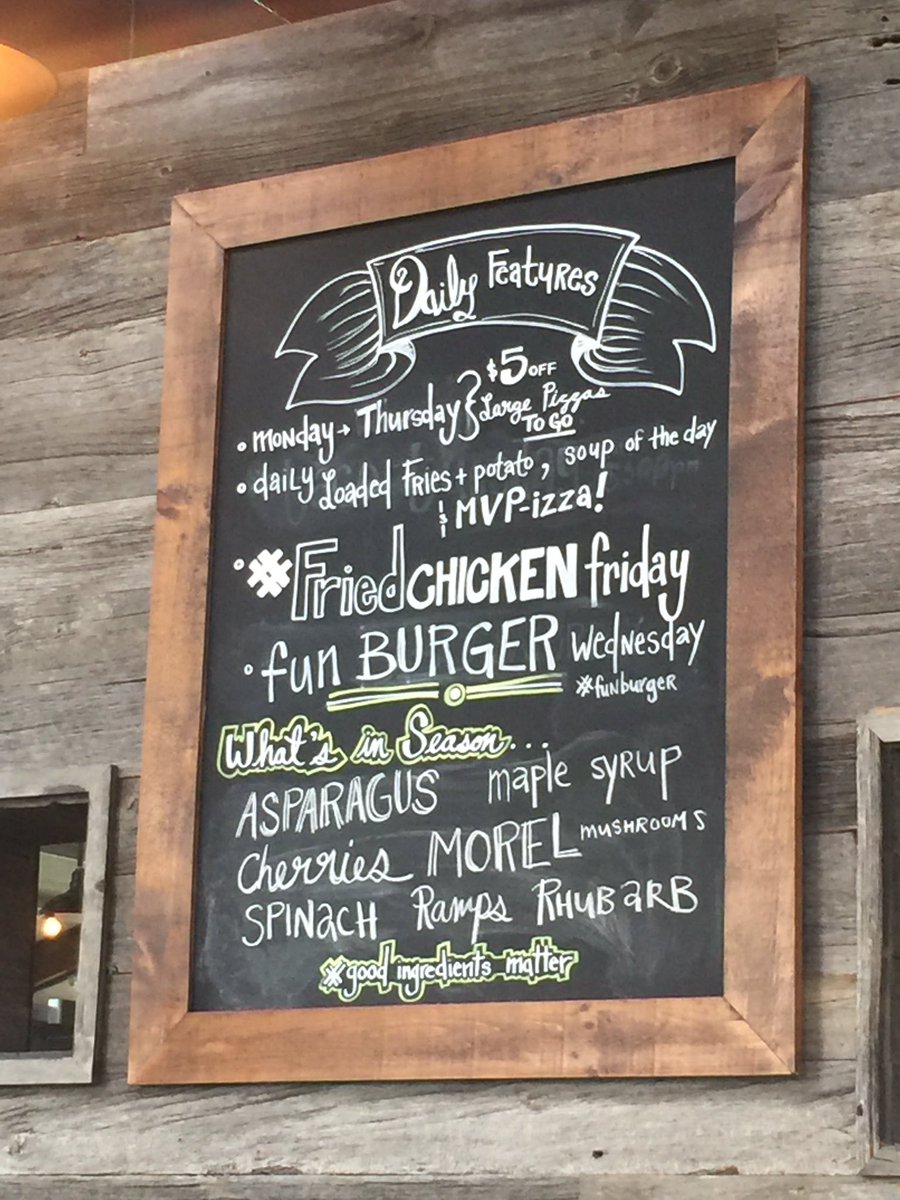 Daily Features
$5 OFF
• Monday → Thursday } Large Pizzas
TO GO
• daily Loaded Fries + potato, soup of the day
& MVP-izza!
• #Fried CHICKEN friday
• fun BURGER Wednesday
#funburger
What's in Season...
ASPARAGUS maple syrup
Cherries MOREL MUSHROOMS
SPINACH Ramps RHUBARB
#good ingredients matter